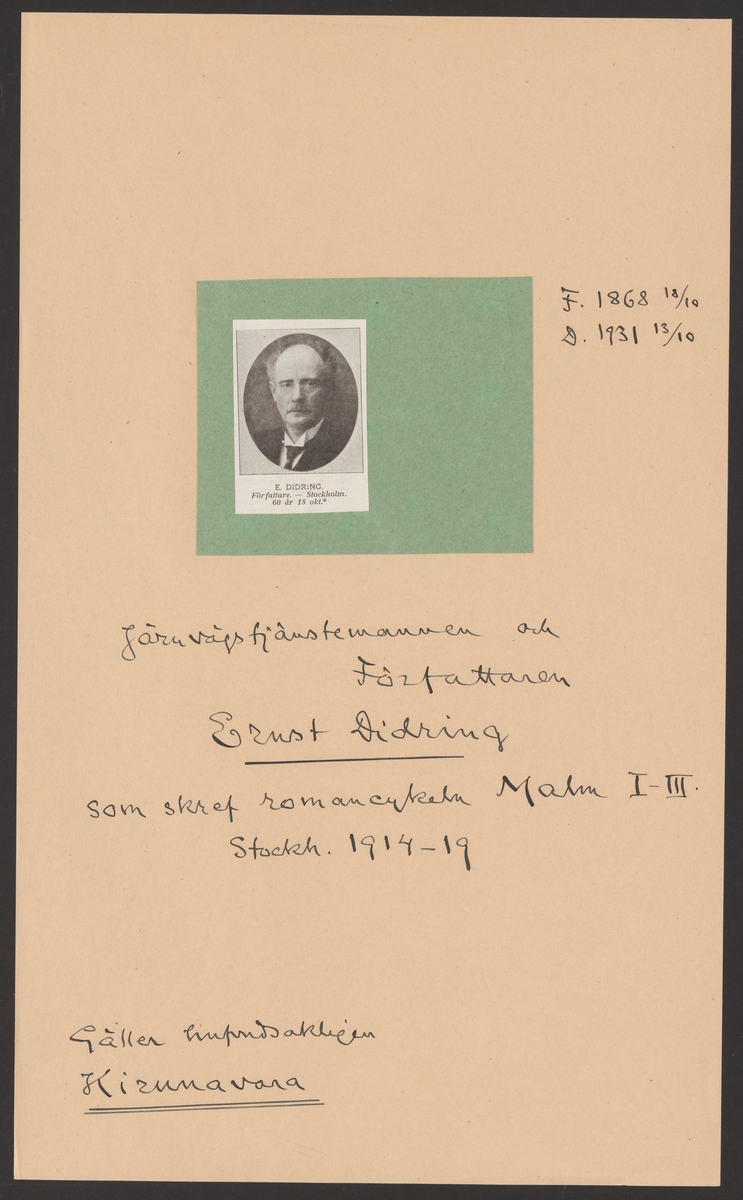 F. 1868 18/10
D. 1931 13/10
E. DIDRING.
Författare. — Stockholm.
60 år 18 okt.*
Järnvägstjänstemannen och
Författaren
Ernst Didring
som skref romancykeln Malm I–III.
Stockh. 1914–19
Gäller hufvudsakligen
Kirunavara